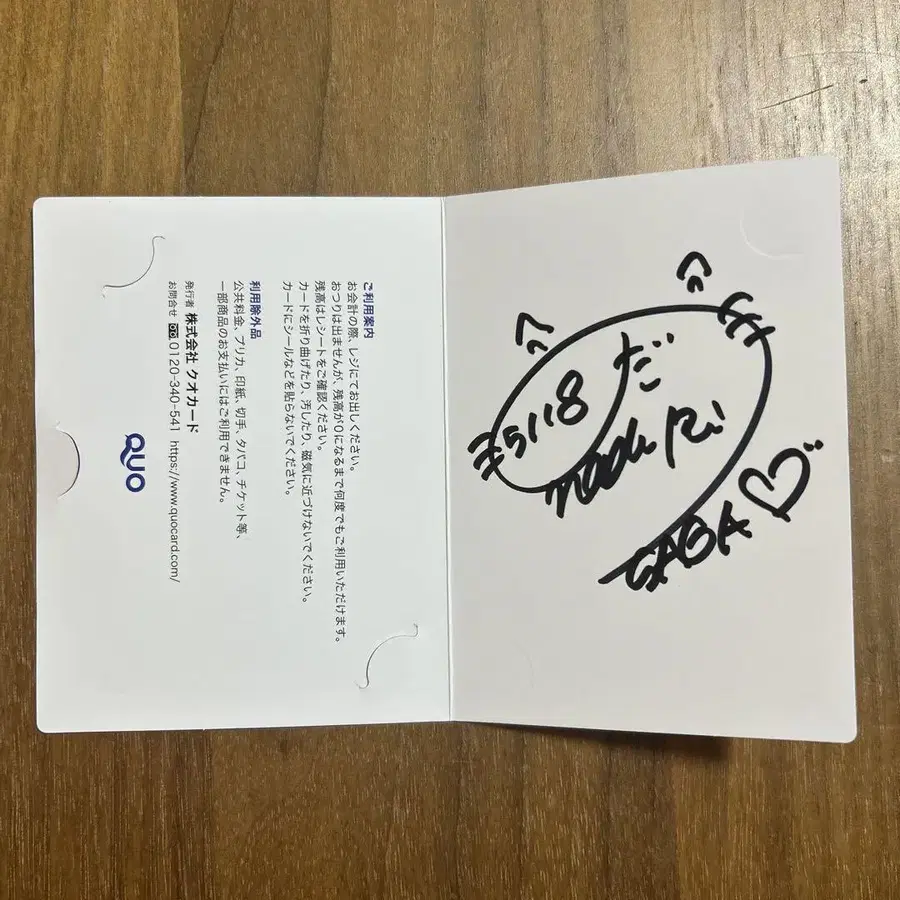 ご利用案内
お会計の際、レジにてお出しください。
おつりは出ませんが、残高が0になるまで何度でもご利用いただけます。
残高はレシートをご確認ください。
カードを折り曲げたり、汚したり、磁気に近づけないでください。
カードにシールなどを貼らないでください。
利用除外品
公共料金、プリカ、印紙、切手、タバコ、チケット等、
一部商品のお支払いにはご利用できません。
発行者 株式会社 クオカード
お問合せ 0120-340-541 https://www.quocard.com/
QUO
SAGA